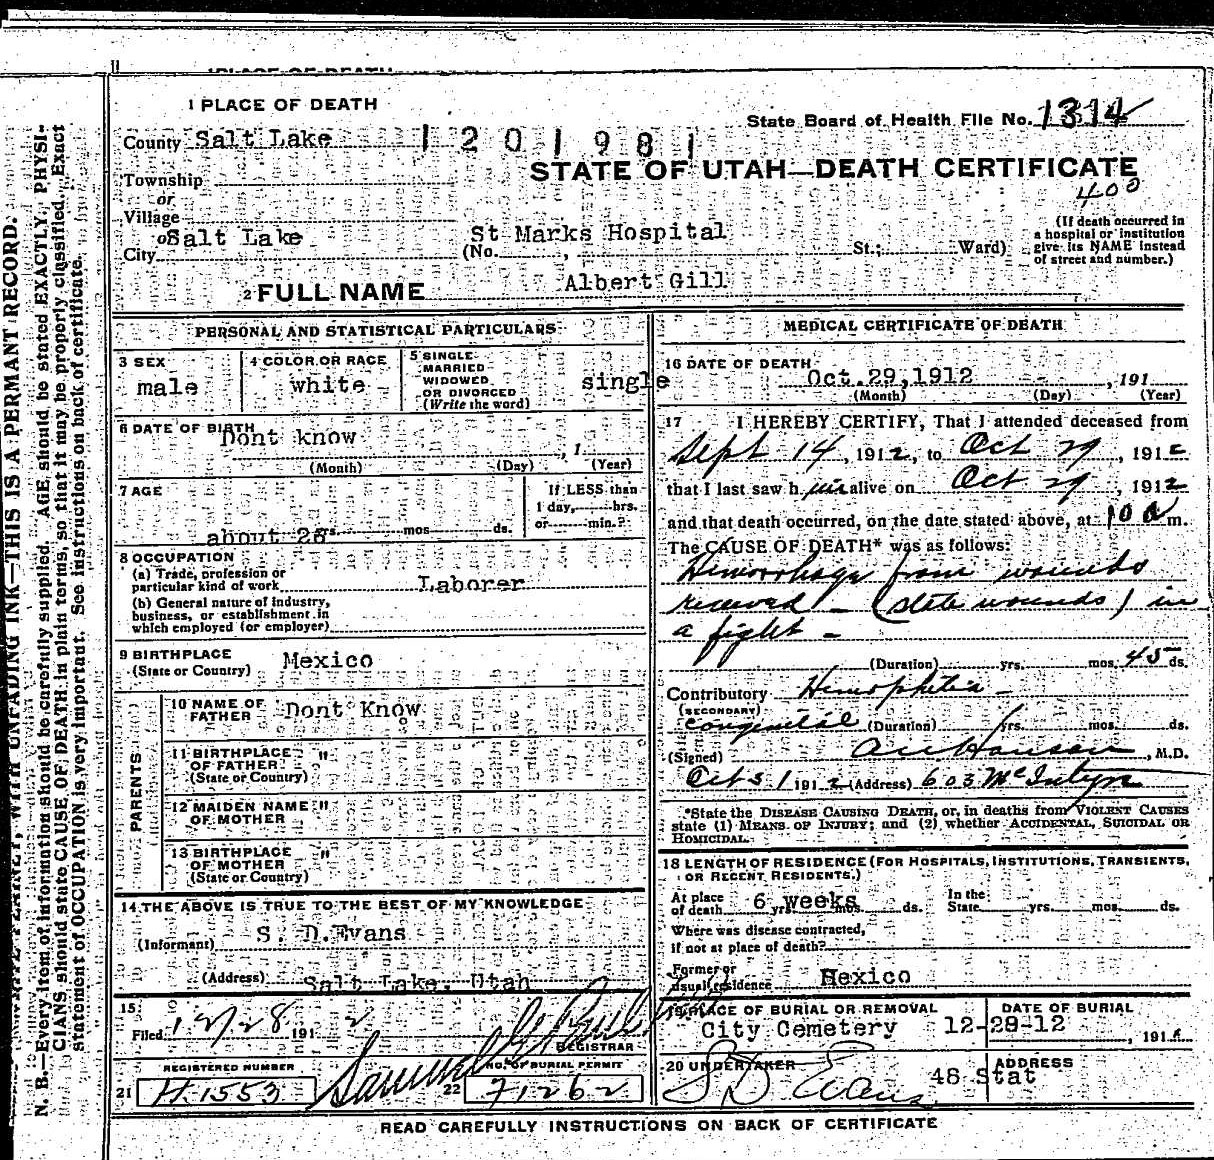 1 PLACE OF DEATH
State Board of Health File No. 1314
County Salt Lake
1 2 0 1 9 8 1
STATE OF UTAH—DEATH CERTIFICATE
Township
400
or
Village
(If death occurred in
a hospital or institution
give its NAME instead
of street and number.)
or
City Salt Lake (No. St Marks Hospital , St.; Ward)
2 FULL NAME Albert Gill
PERSONAL AND STATISTICAL PARTICULARS
3 SEX male
4 COLOR OR RACE white
5 SINGLE
MARRIED
WIDOWED
OR DIVORCED
(Write the word) single
6 DATE OF BIRTH Dont know , 1
(Month) (Day) (Year)
7 AGE
about 26 yrs. mos. ds.
If LESS than
1 day, hrs.
or min.?
8 OCCUPATION
(a) Trade, profession or
particular kind of work Laborer
(b) General nature of industry,
business, or establishment in
which employed (or employer)
9 BIRTHPLACE
(State or Country) Mexico
PARENTS
10 NAME OF
FATHER Dont Know
11 BIRTHPLACE "
OF FATHER
(State or Country)
12 MAIDEN NAME "
OF MOTHER
13 BIRTHPLACE "
OF MOTHER
(State or Country)
14 THE ABOVE IS TRUE TO THE BEST OF MY KNOWLEDGE
(Informant) S. D. Evans
(Address) Salt Lake. Utah
15
Filed 12/28 191 2 Samuel G. Paul
REGISTRAR
REGISTERED NUMBER
21 H.1553
NO. OF BURIAL PERMIT
22 71262
MEDICAL CERTIFICATE OF DEATH
16 DATE OF DEATH Oct.29,1912 , 191
(Month) (Day) (Year)
17 I HEREBY CERTIFY, That I attended deceased from
Sept 14, 1912, to Oct 29, 1912
that I last saw him alive on Oct 29, 1912
and that death occurred, on the date stated above, at 10 a m.
The CAUSE OF DEATH* was as follows:
Hemorrhage from wounds
received - (stab wounds) in
a fight -
(Duration) yrs. mos. 45 ds.
Contributory Hemophilia -
(SECONDARY)
congenital (Duration) yrs. mos. ds.
(Signed) Hanson, M.D.
Oct 31 1912 (Address) 603 McIntyre
*State the DISEASE CAUSING DEATH, or, in deaths from VIOLENT CAUSES
state (1) MEANS OF INJURY; and (2) whether ACCIDENTAL, SUICIDAL OR
HOMICIDAL.
18 LENGTH OF RESIDENCE (FOR HOSPITALS, INSTITUTIONS, TRANSIENTS,
OR RECENT RESIDENTS.)
At place
of death 6 weeks yrs. mos. ds.
In the
State yrs. mos. ds.
Where was disease contracted,
if not at place of death?
Former or
usual residence Mexico
19 PLACE OF BURIAL OR REMOVAL
City Cemetery
DATE OF BURIAL
12-29-12 , 191
20 UNDERTAKER
S D Evans
ADDRESS
48 Stat
READ CAREFULLY INSTRUCTIONS ON BACK OF CERTIFICATE
WRITE PLAINLY, WITH UNFADING INK—THIS IS A PERMANT RECORD.
N. B.—Every item of information should be carefully supplied. AGE should be stated EXACTLY. PHYSI-
CIANS should state CAUSE OF DEATH in plain terms, so that it may be properly classified. Exact
statement of OCCUPATION is very important. See instructions on back of certificate.